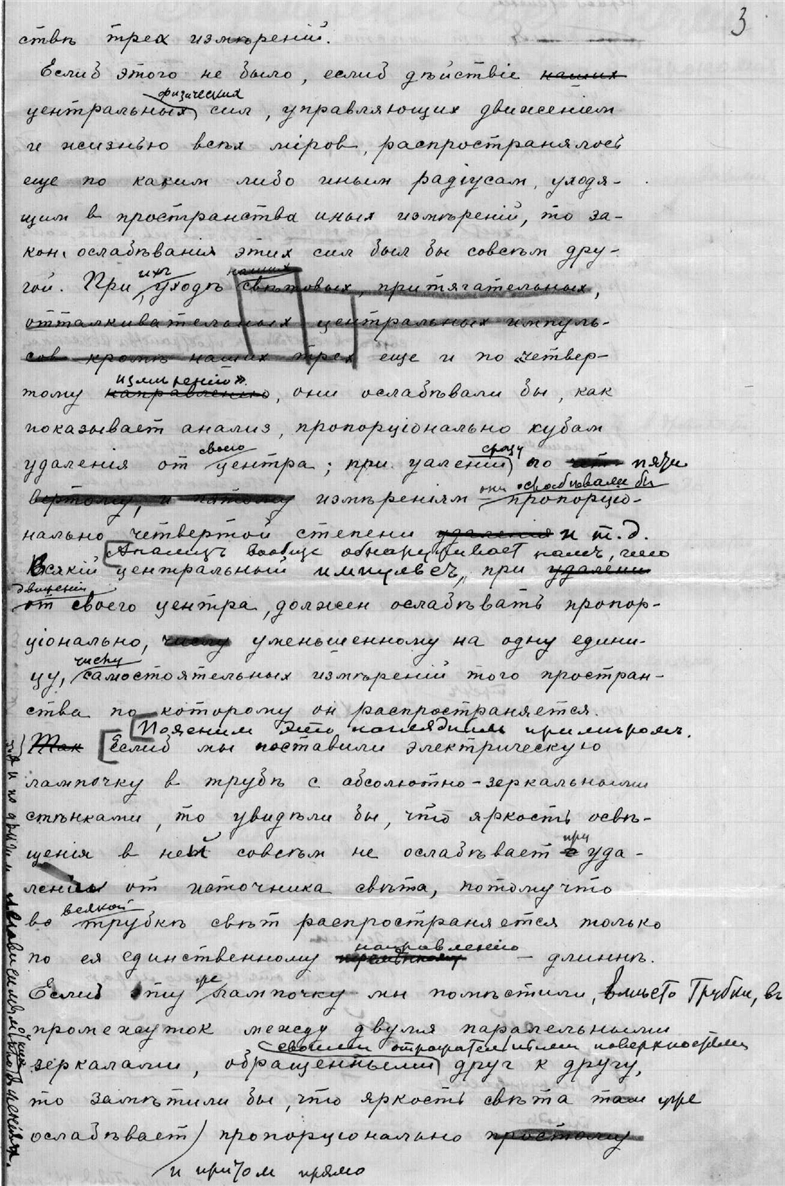 3
ствѣ трех измѣреній.
Еслиб этого не было, еслиб дѣйствіе наших
физических
центральных сил, управляющих движеніем
и жизнью всѣх міров, распространялось
еще по каким либо иным радіусам, уходя-
щим в пространства иных измѣреній, то за-
кон ослабѣванія этих сил был бы совсѣм дру-
ихъ наших
гой. При уходѣ свѣтовых, притягательных,
отталкивательных центральных импуль-
сов кромѣ наших трех еще и по четвер-
измѣренію
тому направленію, они ослабѣвали бы, как
показывает анализ, пропорціонально кубам
своего сразу
удаленія от центра; при уаленіи по чет пяти
они ослабѣвали бы
вертому, и пятому измѣреніям пропорціо-
нально четвертой степени удаленія и т.д.
Анализъ вообще обнаруживает намъ, что
Всякій центральный импульсъ, при удалени
движеніи
от своего центра, должен ослабѣвать пропор-
ціонально, числу уменьшенному на одну едини-
числу
цу, самостоятельных измѣреній того простран-
ства по которому он распространяется.
Пояснимъ это нагляднымъ примѣромъ.
Так Еслиб мы поставили электрическую
лампочку в трубѣ с абсолютно-зеркальными
стѣнками, то увидѣли бы, что яркость освѣ-
при
щенія в ней совсѣм не ослабѣвает с уда-
леніи от источника свѣта, потому что
всякой
во трубкѣ свѣт распространяется только
направленію
по ея единственному – длиннѣ.
же
Еслиб эту лампочку мы помѣстили, вмѣсто трубки, въ
промежуток между двумя паралельными
своими отражательными поверхностями
зеркалами, обращенными друг к другу,
то замѣтили бы, что яркость свѣта там уже
ослабѣвает пропорціонально простому
и притом прямо